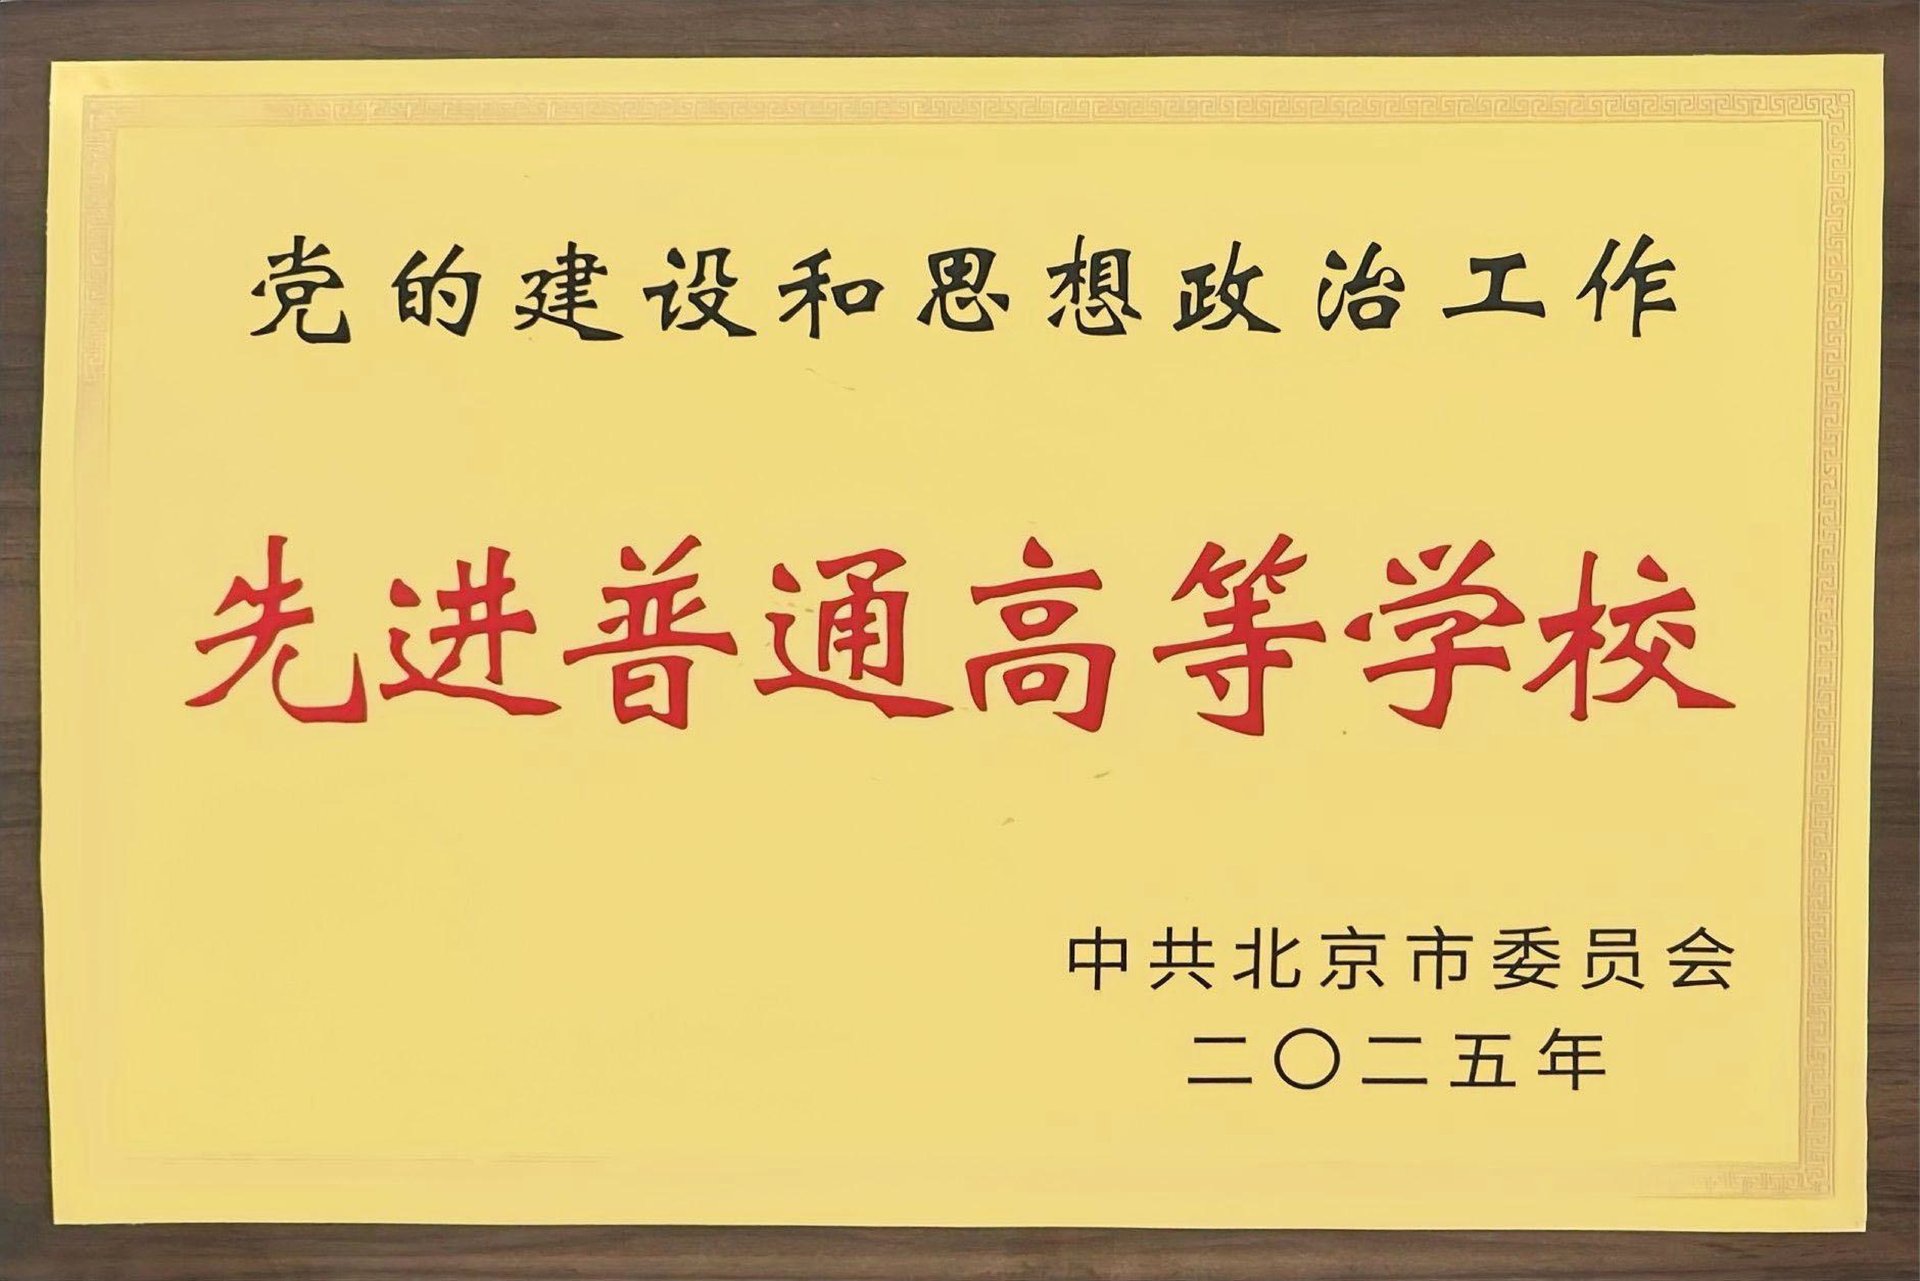 党的建设和思想政治工作
先进普通高等学校
中共北京市委员会
二〇二五年